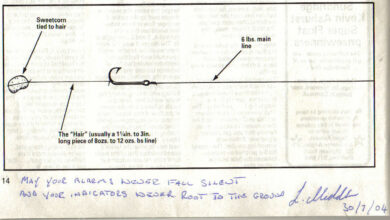 Sweetcorn
tied to hair
6 lbs. main
line
The "Hair" (usually a 1¼in. to 3in.
long piece of 8ozs. to 12 ozs. bs line)
14
MAY YOUR ALARMS NEVER FALL SILENT
AND YOUR INDICATORS NEVER ROOT TO THE GROUND
30/7/04